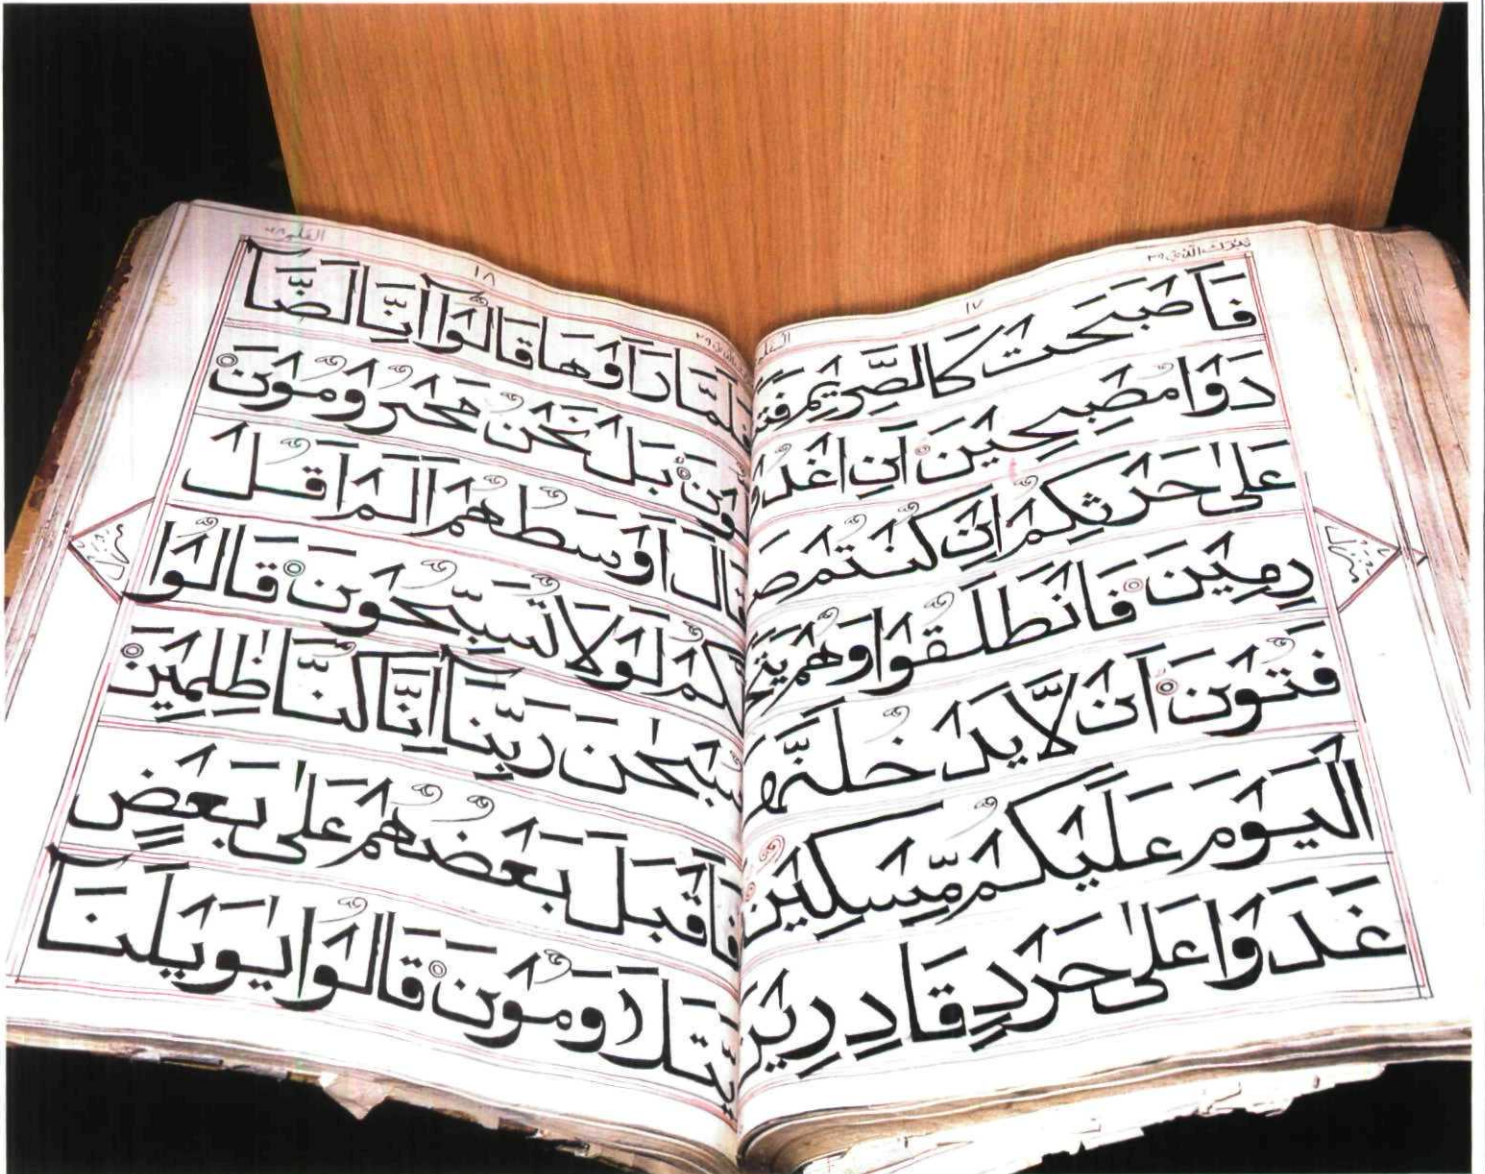 ١٧
فَاَصْبَحَتْ كَالصَّرِيْمِ فَتَنَا
دَوْا مُصْبِحِيْنَ اَنِ اغْدُوْا
عَلٰى حَرْثِكُمْ اِنْ كُنْتُمْ صٰ
رِمِيْنَ فَانْطَلَقُوْا وَهُمْ يَتَخَا
فَتُوْنَ اَنْ لَّا يَدْخُلَنَّهَا
الْيَوْمَ عَلَيْكُمْ مِّسْكِيْنٌ وَّ
غَدَوْا عَلٰى حَرْدٍ قَادِرِيْنَ
١٨
القلم ٦٨
فَلَمَّا رَاَوْهَا قَالُوْٓا اِنَّا لَضَآ
لُّوْنَ بَلْ نَحْنُ مَحْرُوْمُوْنَ
قَالَ اَوْسَطُهُمْ اَلَمْ اَقُلْ
لَّكُمْ لَوْلَا تُسَبِّحُوْنَ قَالُوْا
سُبْحٰنَ رَبِّنَآ اِنَّا كُنَّا ظٰلِمِيْنَ
فَاَقْبَلَ بَعْضُهُمْ عَلٰى بَعْضٍ
يَّتَلَاوَمُوْنَ قَالُوْا يٰوَيْلَنَآ